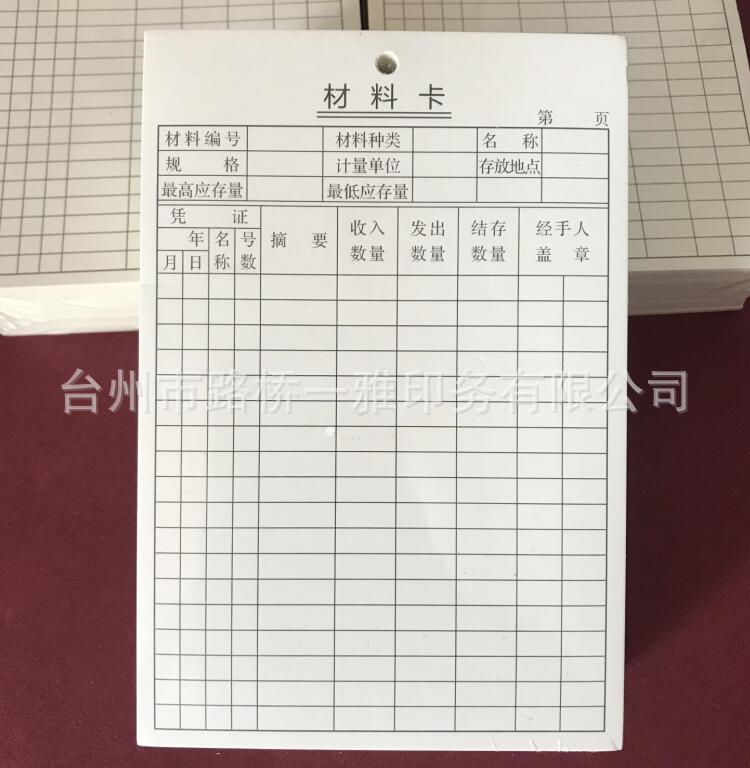 材料卡
第 页
材料编号 材料种类 名 称
规 格 计量单位 存放地点
最高应存量 最低应存量
凭 证 摘 要 收入数量 发出数量 结存数量 经手人盖章
年 名称 号数
月 日
台州市路桥一雅印务有限公司